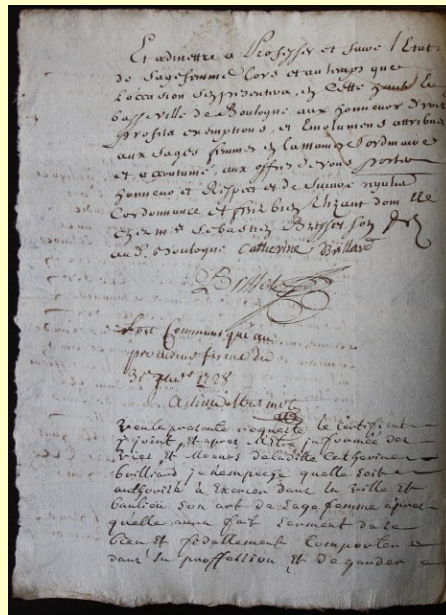 Et admettre a Professer et suivre l'Estat
de Sagefemme Lors et autemps que
L'occasion Sepresentera, en Cette haute &
basseville de Boulogne, aux honneurs Droits
Profits exemptions, et Emolumens attribués
aux Sages femmes en lamaniere ordinaire
et accoutumé, aux offres devous porter
honneur et Respect et de Suivre
Lordonnance et ferez bien Elizant domicile
Chez Me Sebastien Brisset Son
aud. Boulogne Catherine Brillard
Brisset
Soit Communiqué au
procureur fiscal du
31e 1728
Veu la presente requeste le Certificat
y joint, et apres M'estre informé des
Vies et Moeurs deladitte Catherine
brilliard je nempeche quelle soit
authorisée à Exercer dans la Ville Et
banlieu Son art de Sage femme apres
quelle aura fait Serment de se
bien et fidellement Comporter
dans sa proffession Et de garder